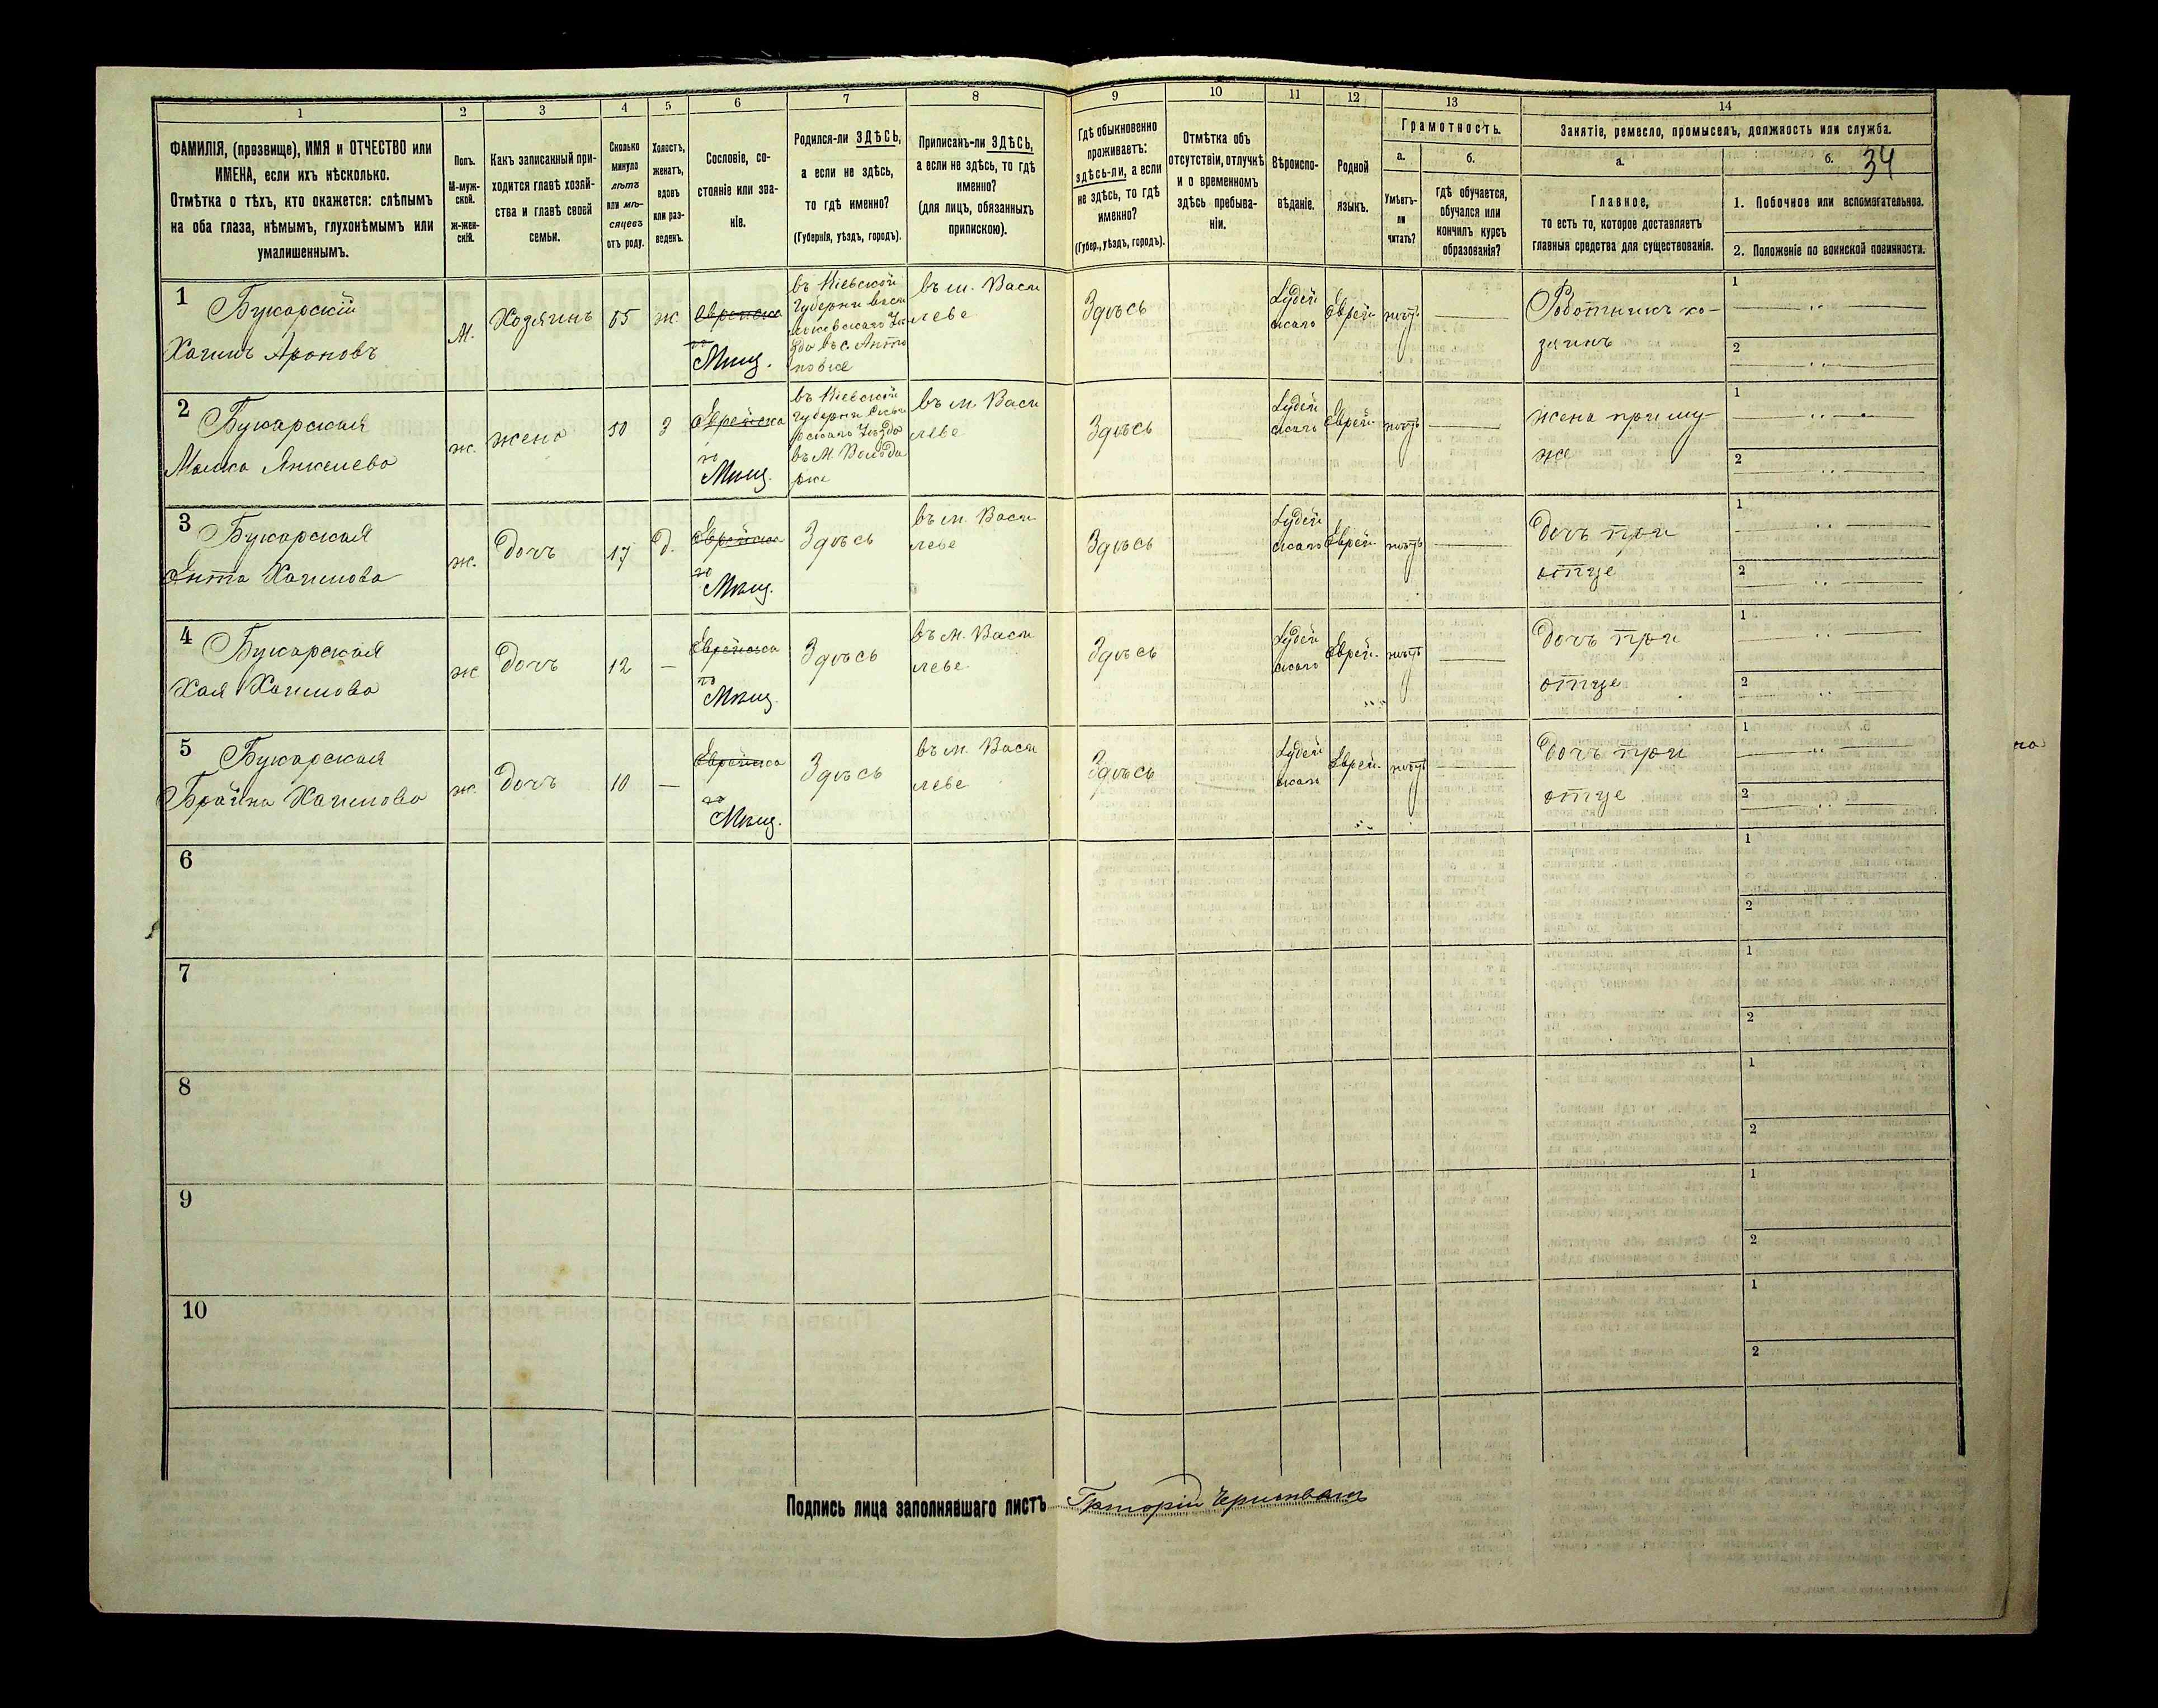 1
2
3
4
5
6
7
8
9
10
11
12
13
14
ФАМИЛІЯ, (прозвище), ИМЯ и ОТЧЕСТВО или
ИМЕНА, если ихъ нѣсколько.
Отмѣтка о тѣхъ, кто окажется: слѣпымъ
на оба глаза, нѣмымъ, глухонѣмымъ или
умалишеннымъ.
Полъ.
М-муж-
ской.
Ж-жен-
скій.
Какъ записанный при-
ходится главѣ хозяй-
ства и главѣ своей
семьи.
Сколько
минуло
лѣтъ
или мѣ-
сяцевъ
отъ роду.
Холостъ,
женатъ,
вдовъ
или раз-
веденъ.
Сословіе, со-
стояніе или зва-
ніе.
Родился-ли ЗДѢСЬ,
а если не здѣсь,
то гдѣ именно?
(Губернія, уѣздъ, городъ).
Приписанъ-ли ЗДѢСЬ,
а если не здѣсь, то гдѣ
именно?
(для лицъ, обязанныхъ
припискою).
Гдѣ обыкновенно
проживаетъ:
здѣсь-ли, а если
не здѣсь, то гдѣ
именно?
(Губер., уѣздъ, городъ).
Отмѣтка объ
отсутствіи, отлучкѣ
и о временномъ
здѣсь пребыва-
ніи.
Вѣроиспо-
вѣданіе.
Родной
языкъ.
Грамотность.
а.
Умѣетъ-
ли
читать?
б.
гдѣ обучается,
обучался или
кончилъ курсъ
образованія?
Занятіе, ремесло, промыселъ, должность или служба.
а.
Главное,
то есть то, которое доставляетъ
главныя средства для существованія.
б.
34
1. Побочное или вспомогательное.
2. Положеніе по воинской повинности.
1
Букарскій
Хаимъ Ароновъ
М.
Хозяинъ
ж
Мѣщ.
въ Кіевской
въ м. Васи
леве
Здѣсь
Іудей
скаго
Еврей
нѣтъ
хо-
зяинъ
1
2
2
Букарская
Малка Янкелева
ж.
жена
50
З
Еврейска
го
Мѣщ.
въ Кіевской
въ м. Васи
леве
Здѣсь
Іудей
скаго
Еврей
нѣтъ
жена при му-
же
1
2
3
Букарская
Ента Хаимова
ж.
дочь
17
д.
Еврейска
го
Мѣщ.
Здѣсь
въ м. Васи
леве
Здѣсь
Іудей
скаго
Еврей
нѣтъ
дочь при
отце
1
2
4
Букарская
Хая Хаимова
ж
дочь
12
—
Еврейска
го
Мѣщ.
Здѣсь
въ м. Васи
леве
Здѣсь
Іудей
скаго
Еврей.
нѣтъ
дочь при
отце
1
2
5
Букарская
Брайна Хаимова
ж.
дочь
10
—
Еврейска
го
Мѣщ.
Здѣсь
въ м. Васи
леве
Здѣсь
Іудей
скаго
Еврей.
нѣтъ
дочь при
отце
1
2
6
1
2
7
1
2
8
1
2
9
1
2
10
1
2
Подпись лица заполнявшаго листъ